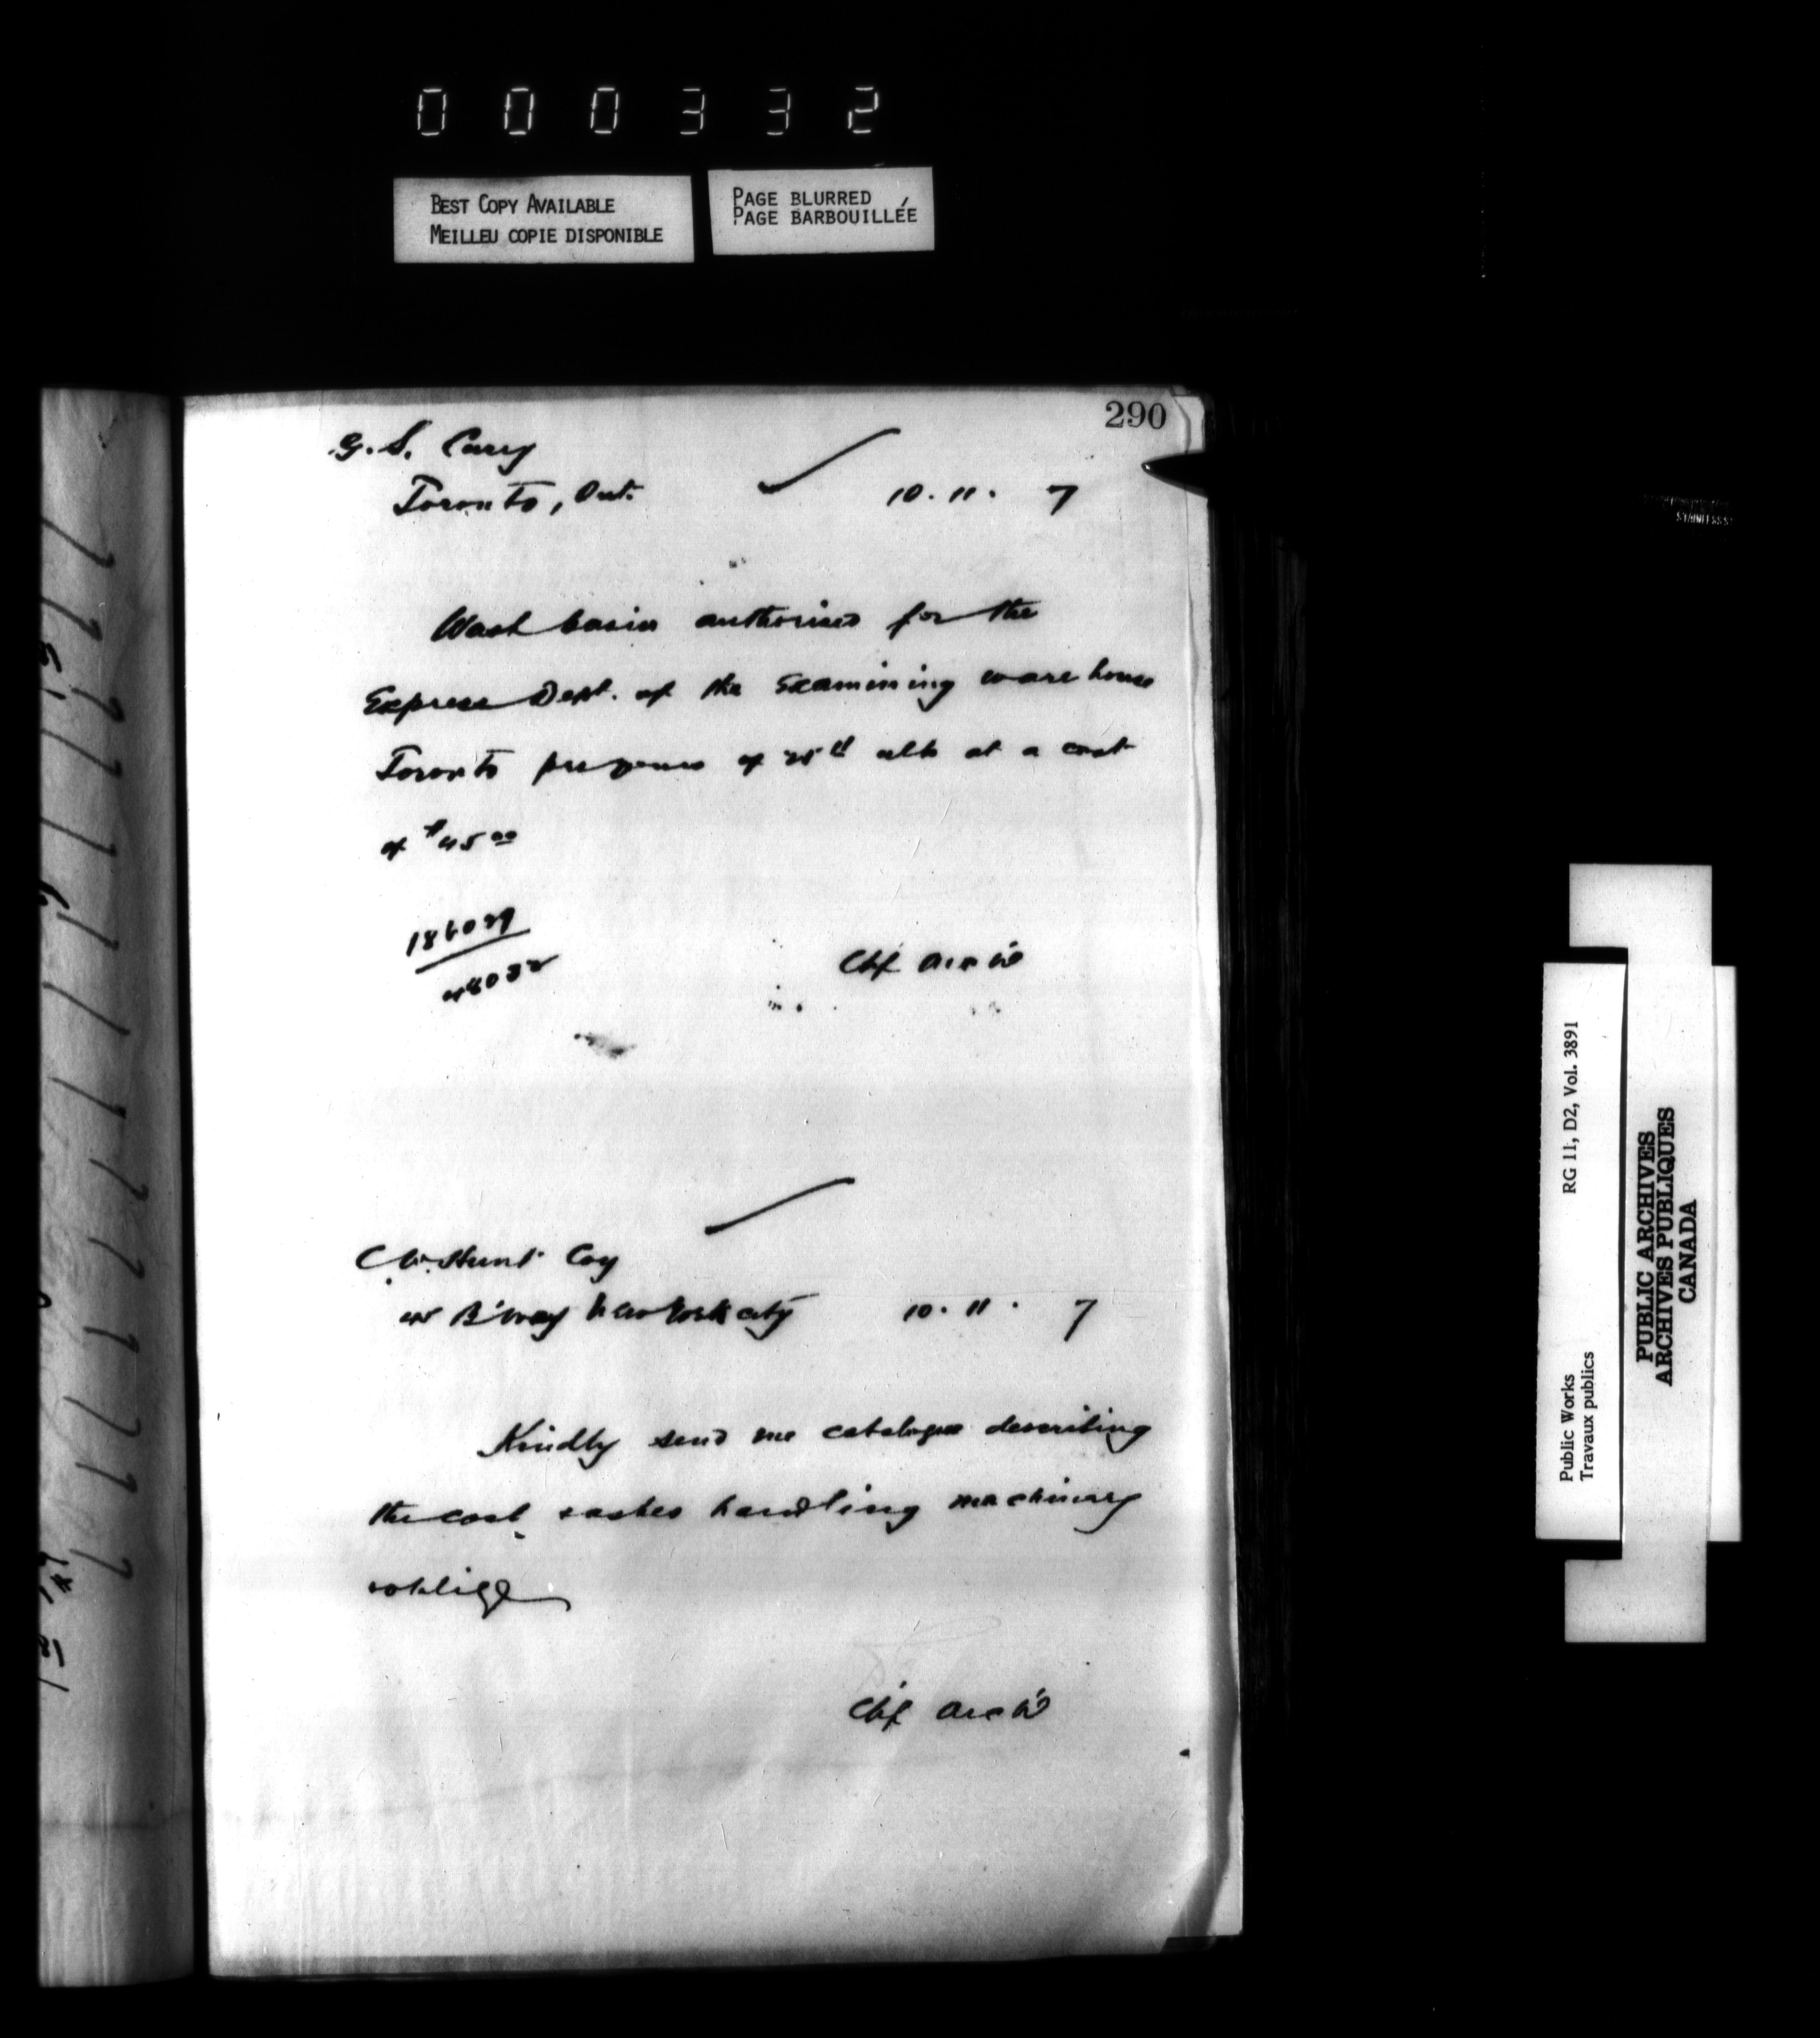 000332
BEST COPY AVAILABLE
MEILLEU COPIE DISPONIBLE
PAGE BLURRED
PAGE BARBOUILLÉE
290
G. S. Curry
Toronto, Ont. 10. 11. 7
Wash basin authorised for the
Express Dept. of the Examining warehouse
Toronto per yours of 25th ulto at a cost
of $45 00
186029
Chf Arch't
C W Hunt Coy
B'way New York city 10. 11. 7
Kindly send me catalogue describing
the coal & ashes handling machinery
& oblige
Chf Arch't
Public Works
Travaux publics
RG 11, D2, Vol. 3891
PUBLIC ARCHIVES
ARCHIVES PUBLIQUES
CANADA